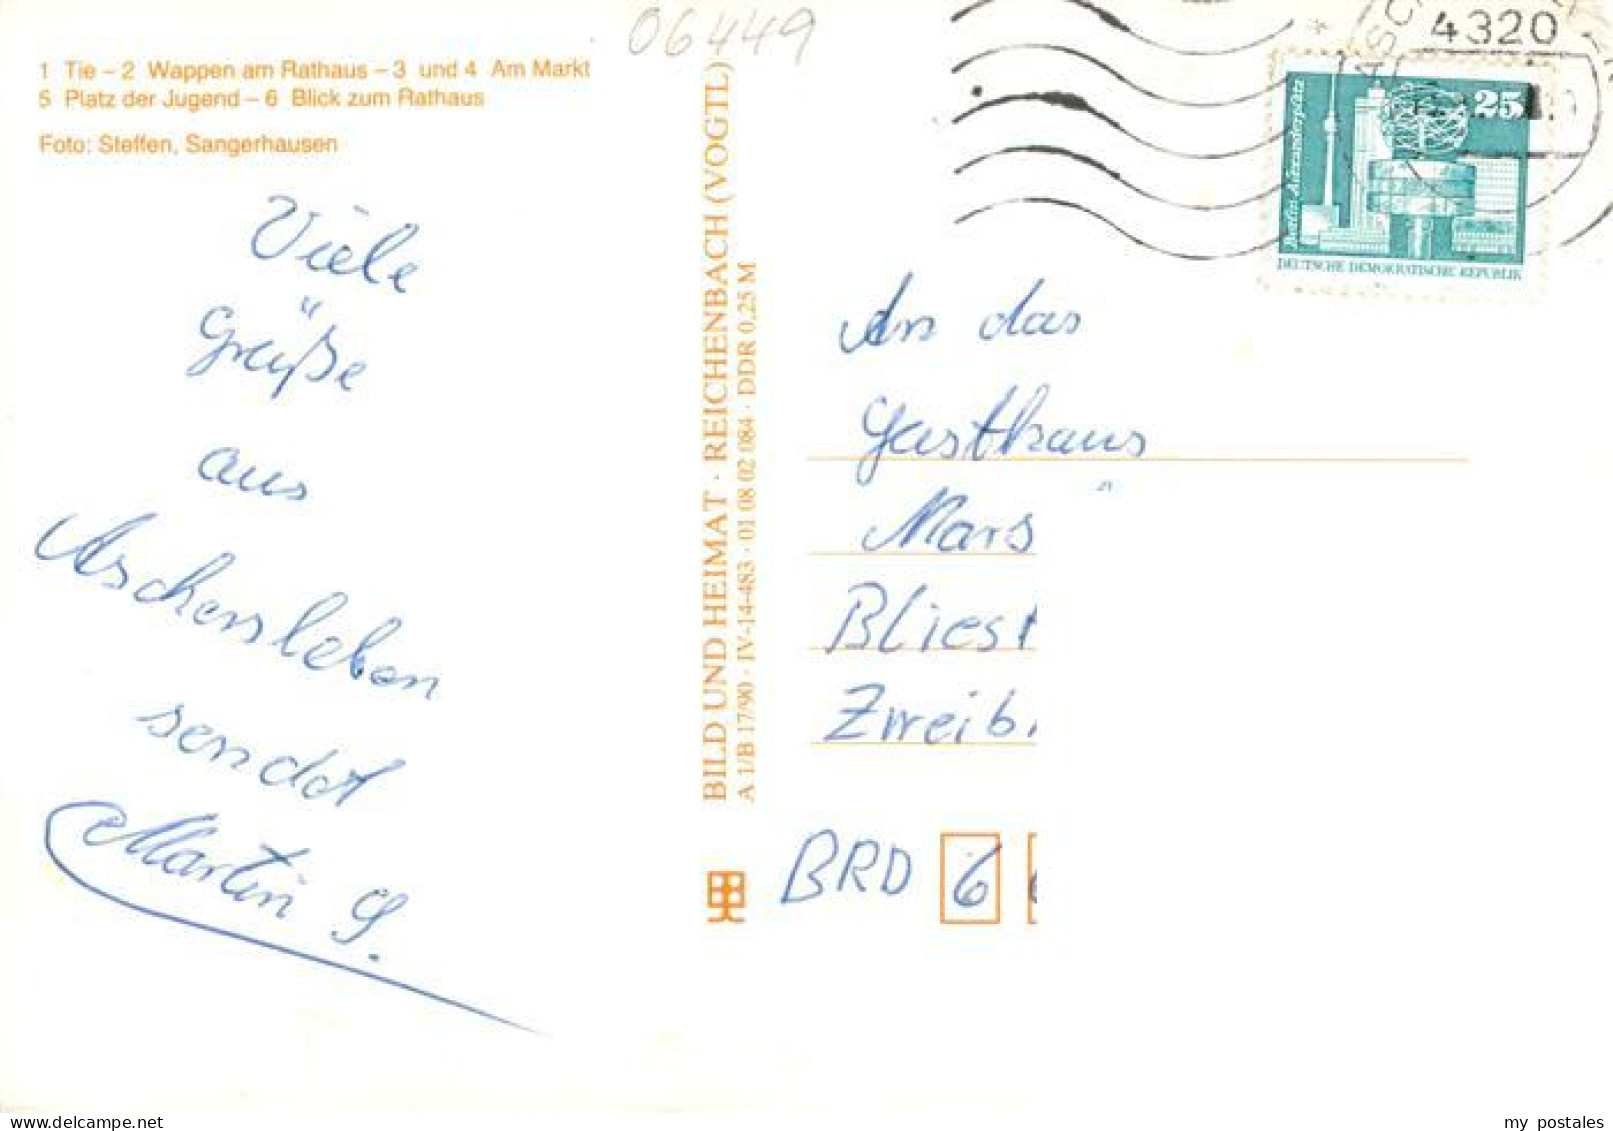 06449
1 Tie – 2 Wappen am Rathaus – 3 und 4 Am Markt
5 Platz der Jugend – 6 Blick zum Rathaus
Foto: Steffen, Sangerhausen
Viele
Grüße
aus
Aschersleben
sendet
Martin G.
BILD UND HEIMAT · REICHENBACH (VOGTL)
A 1/B 17/90 · IV-14-483 · 01 08 02 084 · DDR 0,25 M
4320
25
Berlin Alexanderplatz
DEUTSCHE DEMOKRATISCHE REPUBLIK
An das
Gasthaus
Mars
Bliest
Zweib
BRD 6
my postales